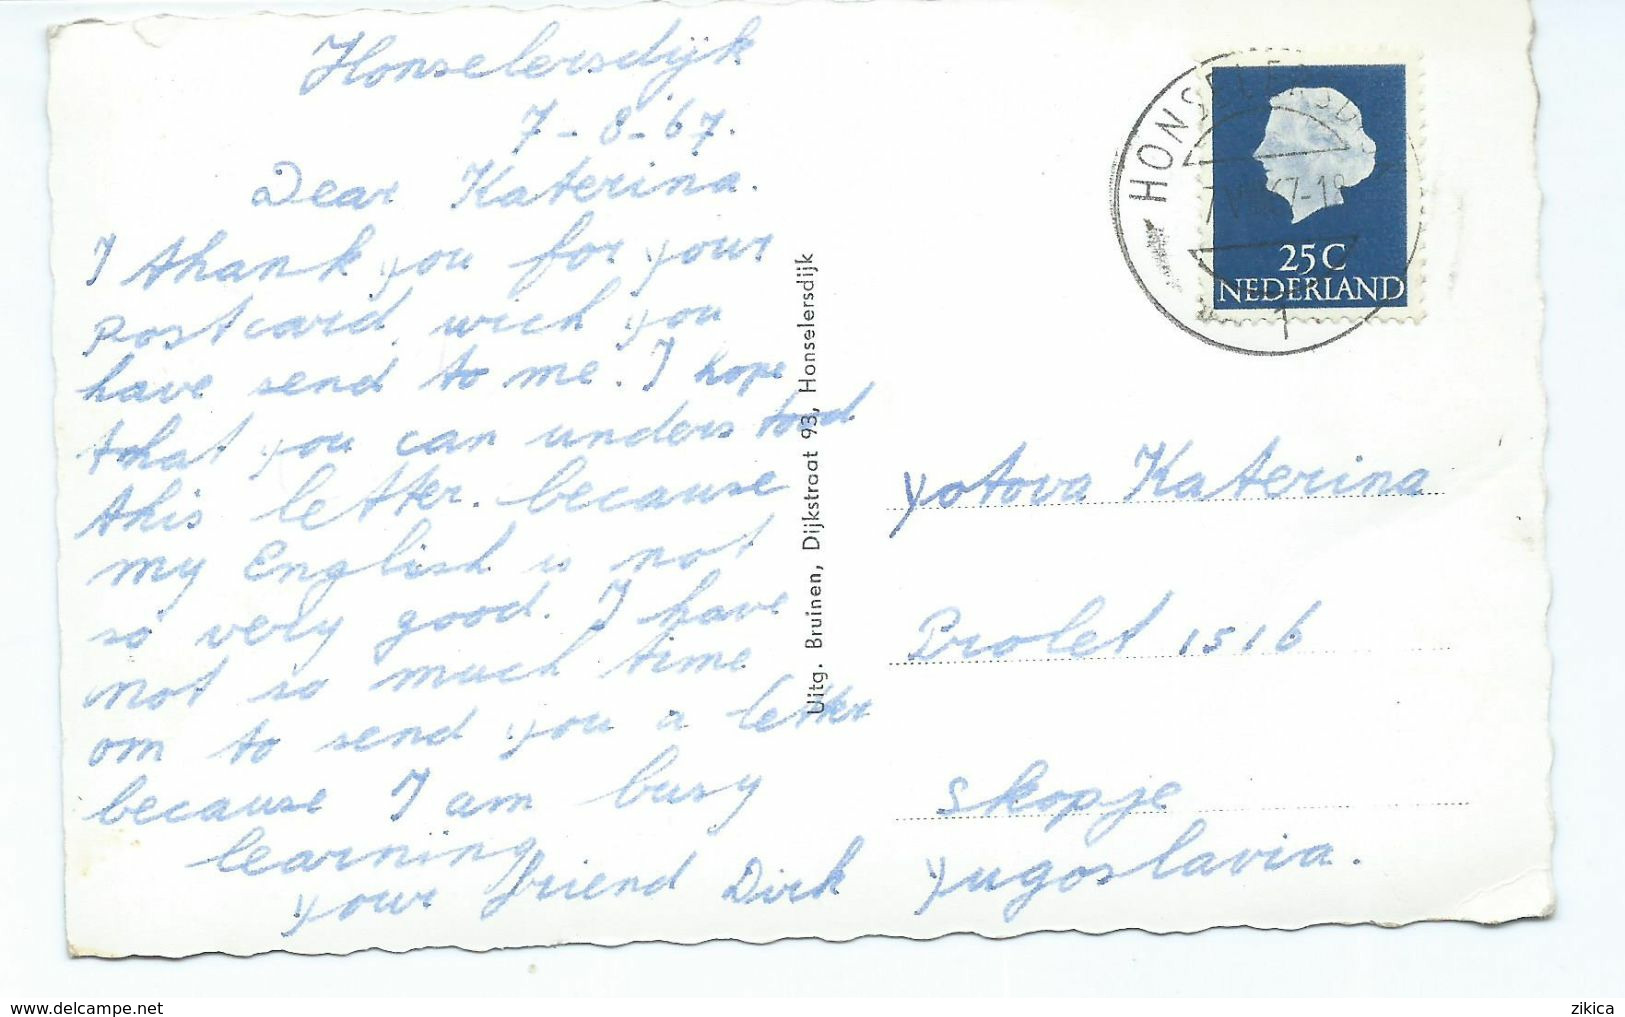 Honselersdijk
7-8-67.
Dear Katerina.
I thank you for your
postcard, wich you
have send to me. I hope
that you can understood
this letter. because
my English is not
so very good. I have
not so much time
om to send you a letter
because I am busy
learning
your friend Dirk
Uitg. Bruinen, Dijkstraat 93, Honselersdijk
HONSELERSD
7 VIII 67-18
1
25 C
NEDERLAND
Yotova Katerina
Prolet 1516
Skopje
Yugoslavia.
zikica